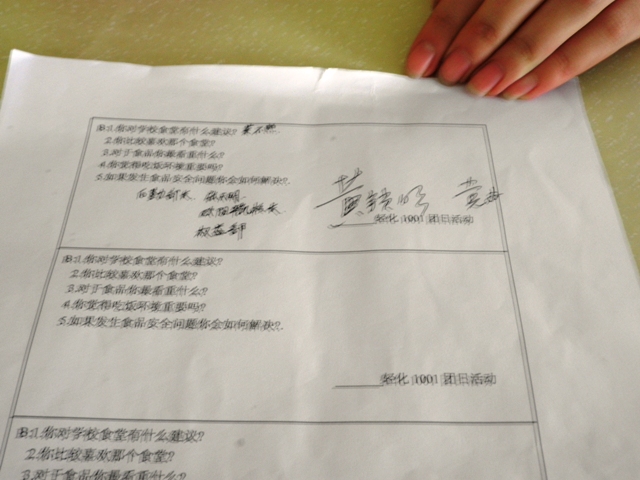 1.你对学校食堂有什么建议?
2.你比较喜欢那个食堂?
3.对于食品你最看重什么?
4.你觉得吃饭环境重要吗?
5.如果发生食品安全问题你会如何解决?
权益部
轻化 1001 团日活动
1.你对学校食堂有什么建议?
2.你比较喜欢那个食堂?
3.对于食品你最看重什么?
4.你觉得吃饭环境重要吗?
5.如果发生食品安全问题你会如何解决?
轻化 1001 团日活动
1.你对学校食堂有什么建议?
2.你比较喜欢那个食堂?
3.对于食品你最看重什么?